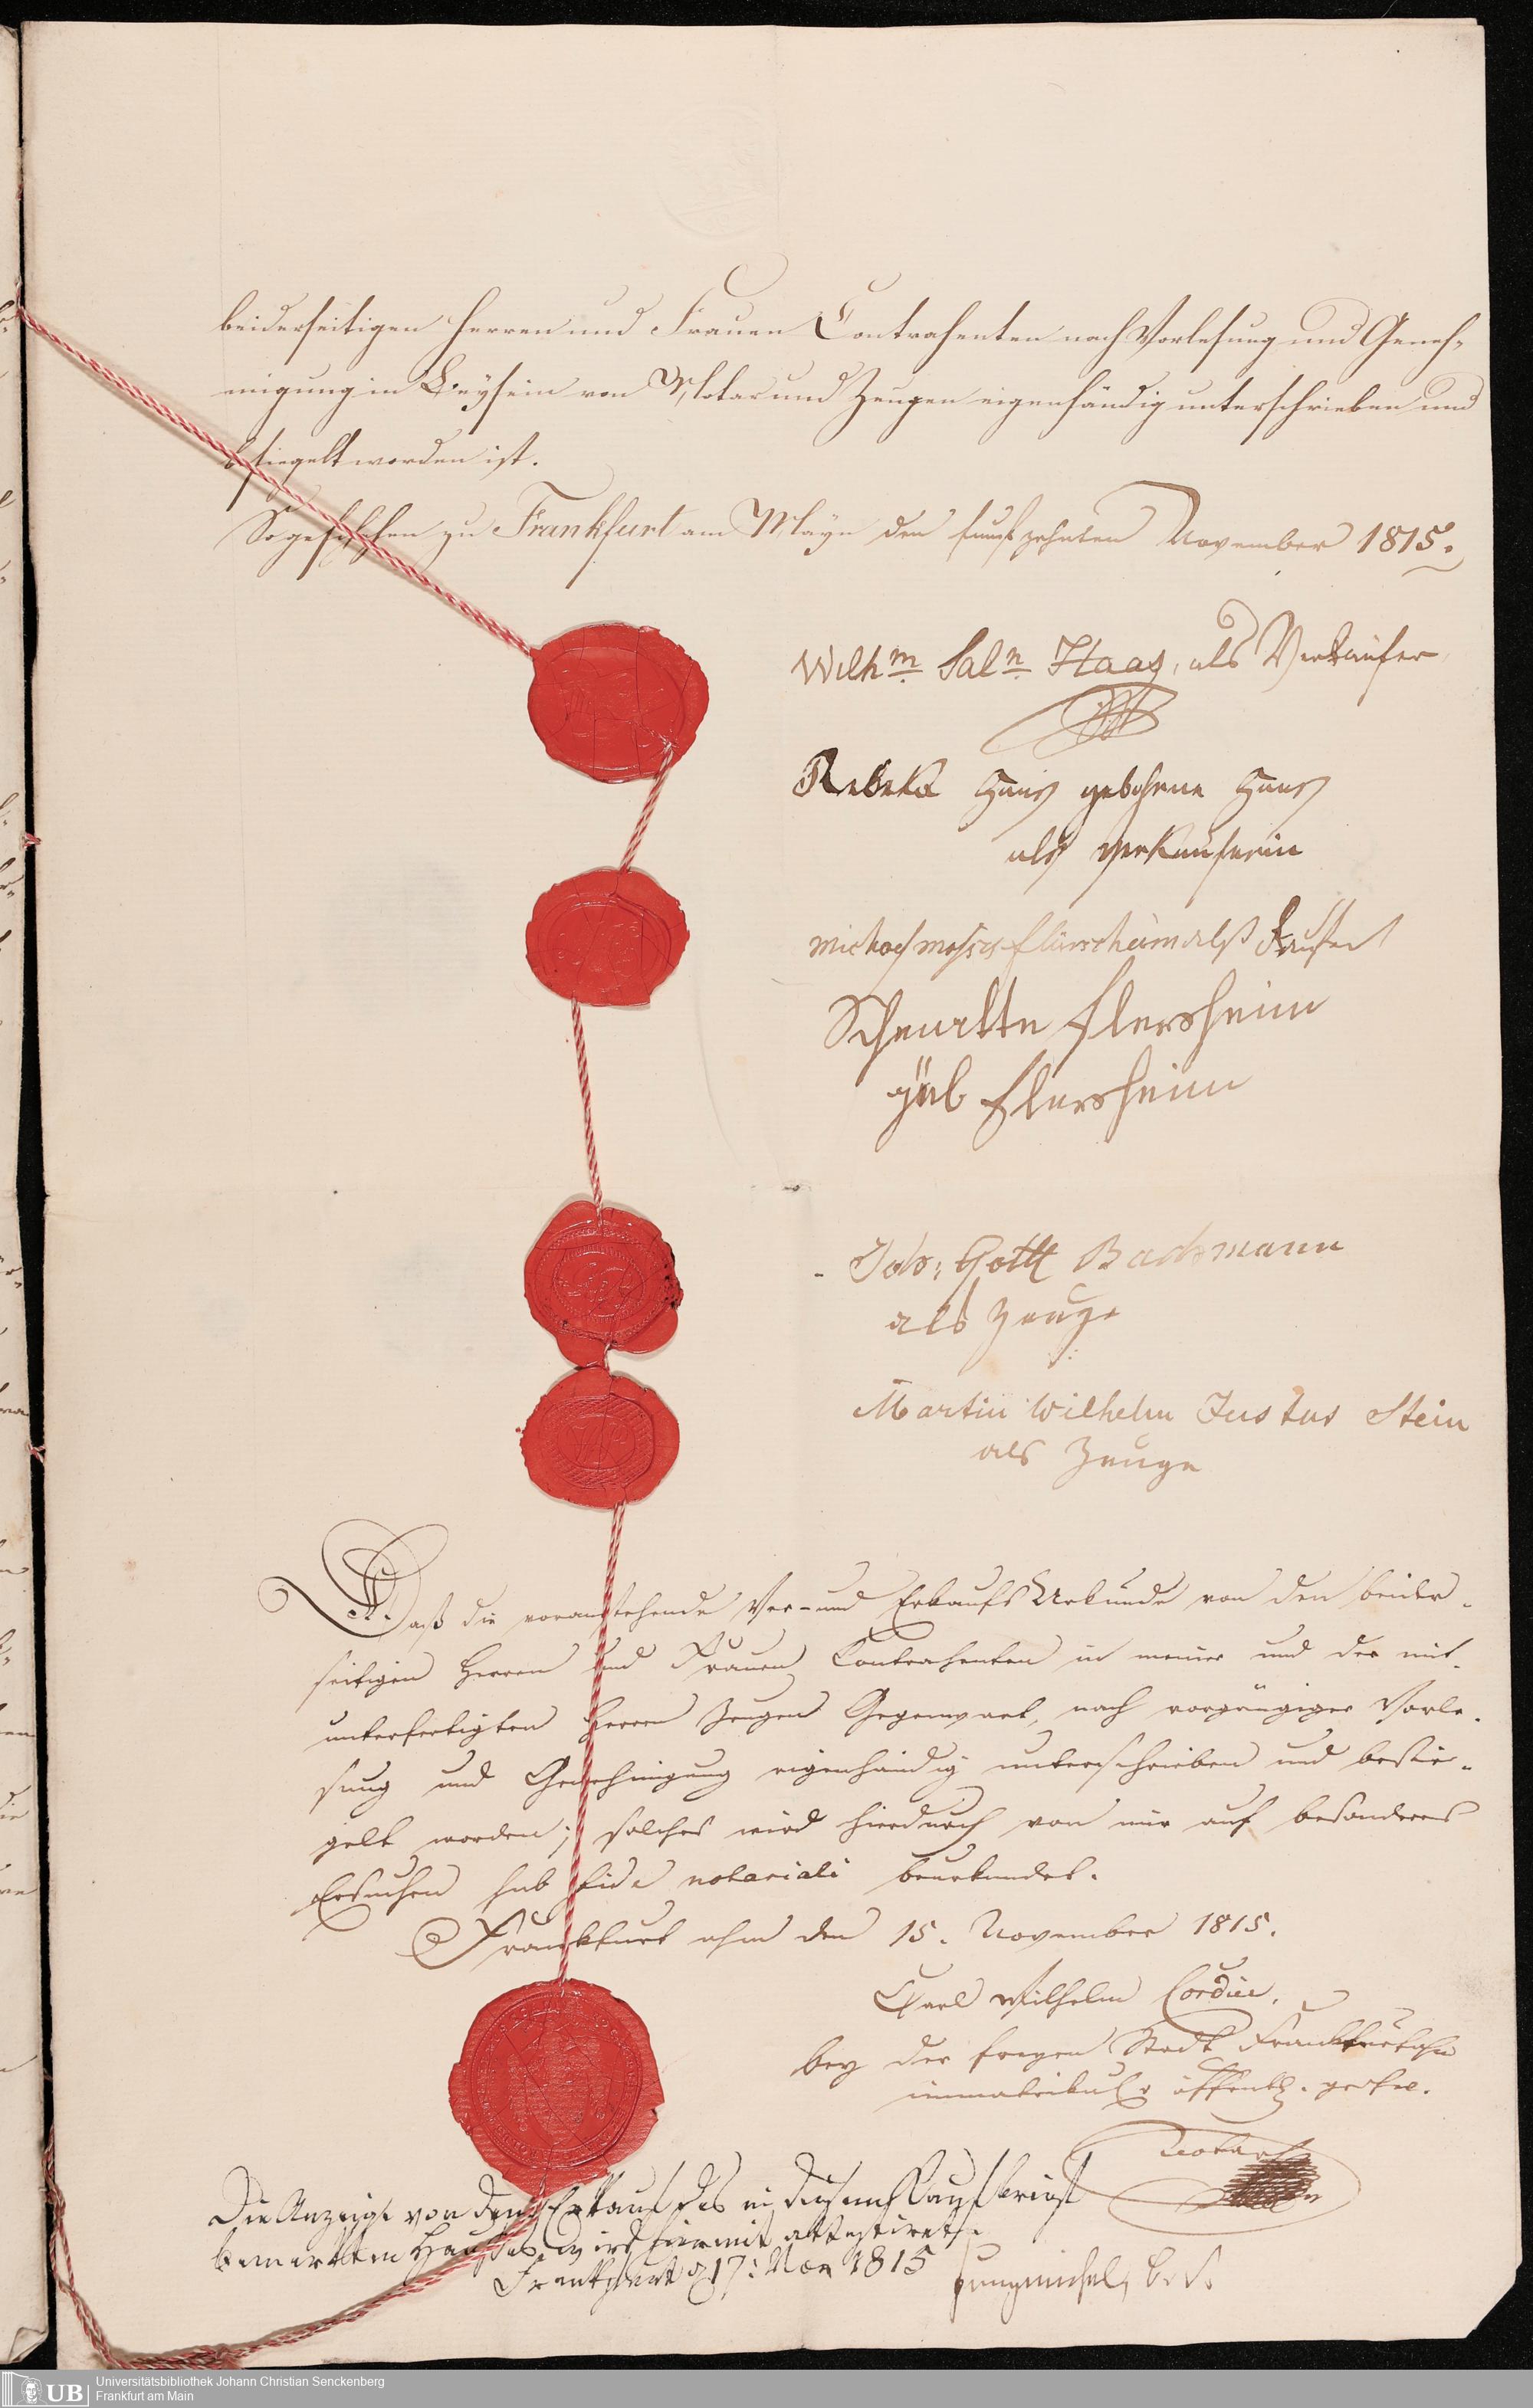 beiderseitigen Herren und Frauen Contrahenten nach Vorlesung und Geneh-
migung in Beysein von Notar und Zeugen eigenhändig unterschrieben und
besiegelt worden ist.
So geschehen zu Frankfurt am Mayn den funfzehnten November 1815.
Wilhm. Saln. Haas, als Verkäufer
Rebeka Haas gebohrene Haas
als Verkäuferin
Michael Moses Flürscheim alß Kaufer
Flersheim
geb Flersheim
Joh: Gottl Bachmann
als Zeuge
Martin Wilhelm Justus Stein
als Zeuge
Daß die voranstehende Ver- und Erkaufs Urkunde von den beider-
seitigen Herren und Frauen Contrahenten in meiner und der mit-
unterfertigten Herren Zeugen Gegenwart, nach vorgängiger Vorle-
sung und Genehmigung eigenhändig unterschrieben und besie-
gelt worden; solches wird hierdurch von mir auf besonderes
Ersuchen sub fide notariali beurkundet.
Frankfurt a/m den 15. November 1815.
Carl Wilhelm Cordier.
bey der freyen Stadt Frankfurt a/m
immatrikul. öffentl. geschw.
Notar
Die Anzeige von dem Erkauf des in diesem Kaufbrief
bemerkten Hauses wird hiermit attestiret.
Frankfurt d 17: Nov 1815
UB
Universitätsbibliothek Johann Christian Senckenberg
Frankfurt am Main